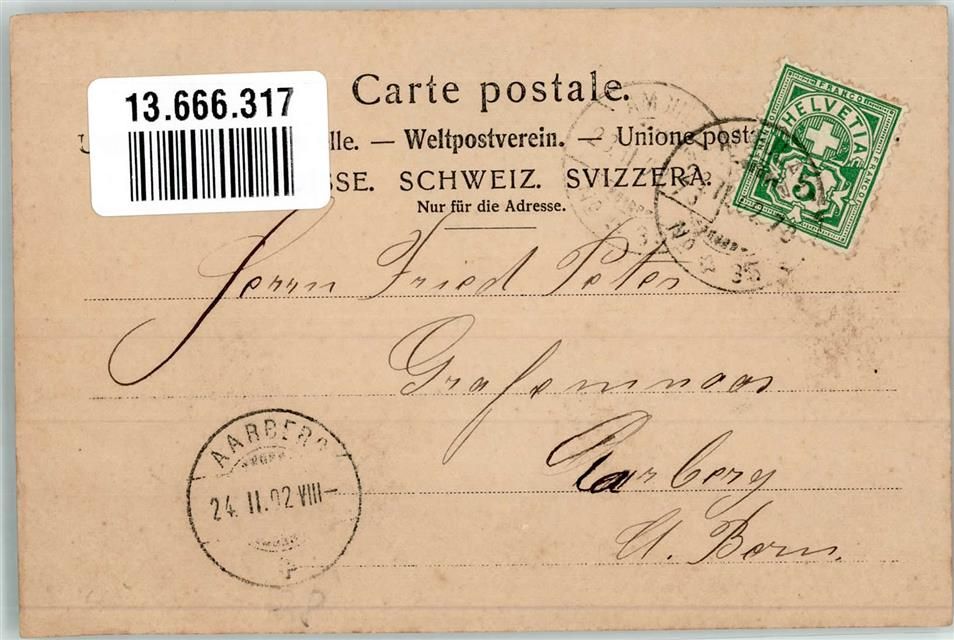 Carte postale.
13.666.317
lle. — Weltpostverein. — Unione posta
SSE. SCHWEIZ. SVIZZERA.
Nur für die Adresse.
FRANCO
HELVETIA
5
Herrn Fried Peter
Grafenmoos
Aarberg
Ct. Bern.
AARBERG
24. II. 02 VIII—